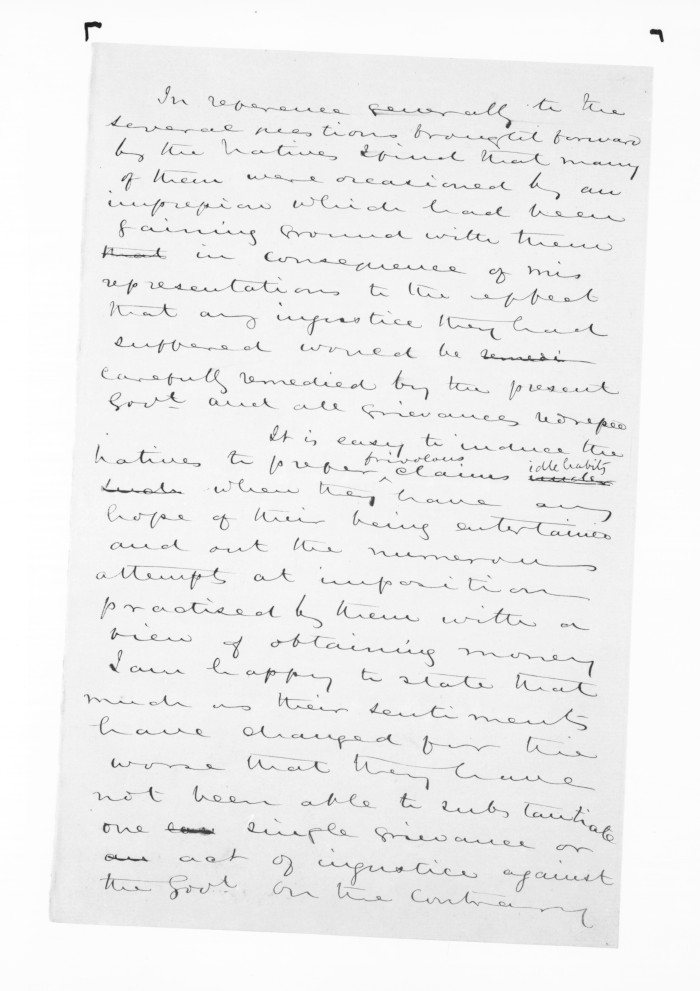 In reference generally to the
several questions brought forward
by the Natives I find that many
of them were occasioned by an
impression which had been
gaining ground with them
that in consequence of mis
representations to the effect
that any injustice they had
suffered would be remedi
carefully remedied by the present
Govt. and all grievances redressed
It is easy to induce the
natives to prefer frivolous claims idle habits
when they have any
hope of their being entertained
and out the numerous
attempts at imposition
practised by them with a
view of obtaining money
I am happy to state that
much as their sentiments
have changed for the
worse that they have
not been able to substantiate
one single grievance or
an act of injustice against
the Govt. On the contrary